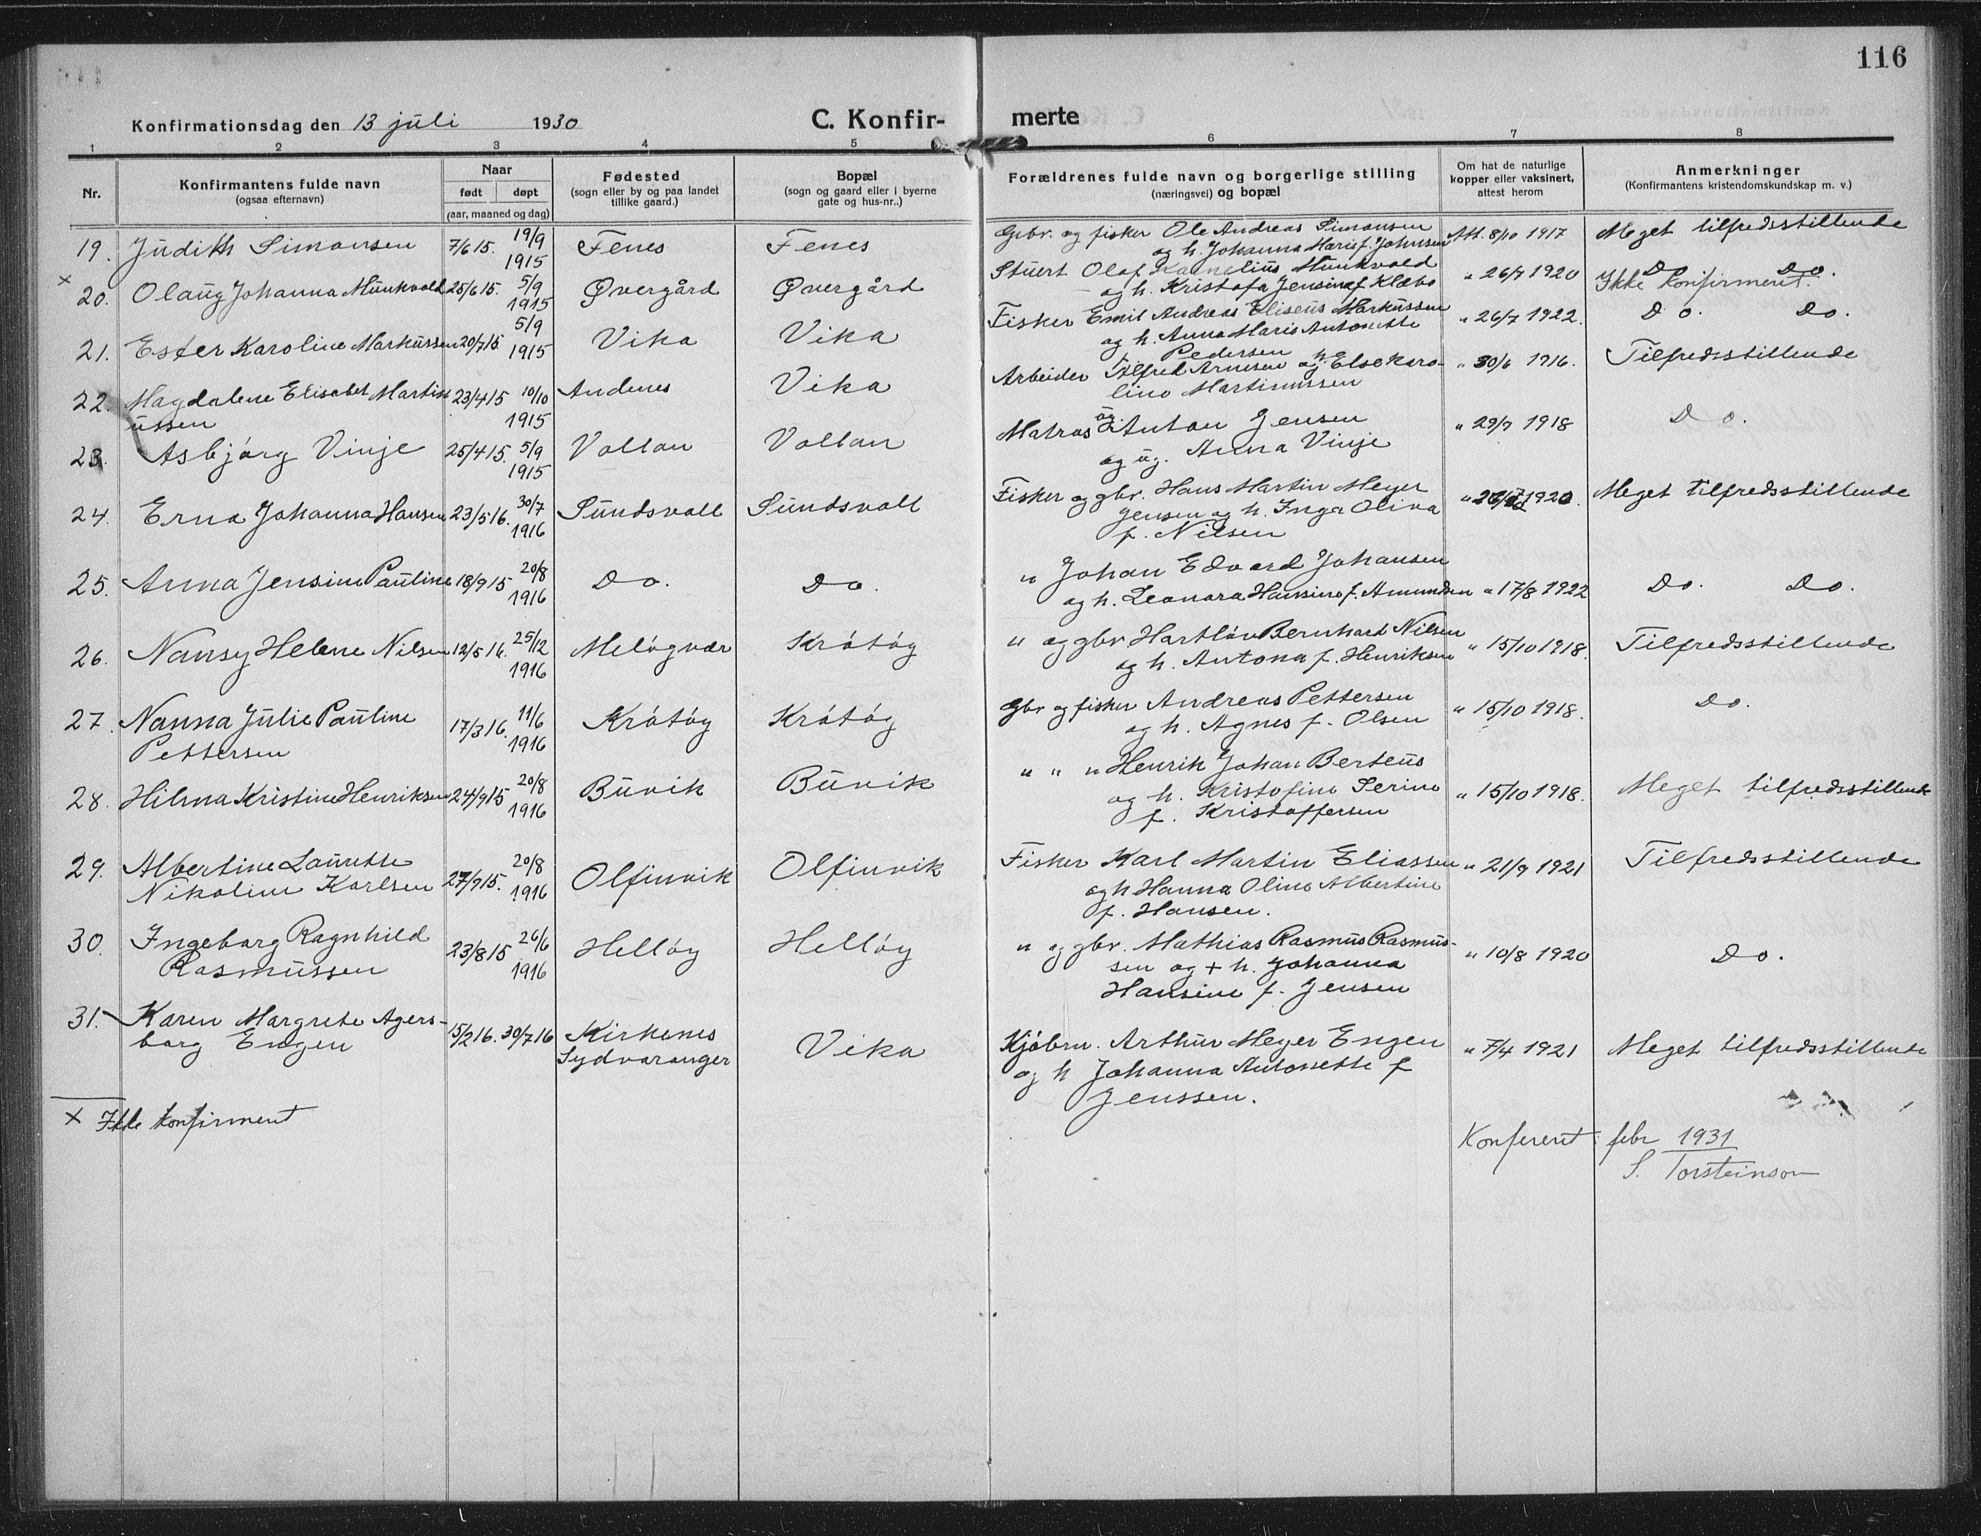 116
Konfirmationsdag den 13 juli 1930 C. Konfir- merte
1 2 3 4 5 6 7 8
Nr.
Konfirmantens fulde navn
(ogsaa efternavn)
Naar
født døpt
(aar, maaned og dag)
Fødested
(sogn eller by og paa landet
tillike gaard.)
Bopæl
(sogn og gaard eller i byerne
gate og hus-nr..)
Forældrenes fulde navn og borgerlige stilling
(næringsvei) og bopæl
Om hat de naturlige
kopper eller vaksinert,
attest herom
Anmerkninger
(Konfirmantens kristendomskundskap m. v.)
19. Judith Simonsen 7/6 15. 19/9 1915 Fenes Fenes
Gbr. og fisker Ole Andreas Simonsen
og h. Johanna Marie f. Johnsen
Att. 8/10 1917 Meget tilfredsstillende
x 20. Olaug Johanna Munkvold 25/6 15. 5/9 1915 Øvergård Øvergård
Stuert Olaf Kornelius Munkvold
og h. Kristofa Jensine f. Klæbo
" 26/7 1920 Do Do.
Ikke konfirmert.
21. Ester Karoline Markussen 20/7 15. 5/9 1915 Vika Vika
Fisker Emil Andreas Eliseus Markussen
og h. Anna Marie Antonette
Pedersen
" 26/7 1922. Do. Do.
22. Magdalene Elisabet Martin
ussen 23/4 15 10/10 1915 Andenes Vika
Arbeider Alfred Arnesen og h. Else Karo-
line Martinussen
" 30/6 1916. Tilfredsstillende
23. Asbjørg Vinje 25/4 15. 5/9 1915 Vollan Vollan
Matros ug. Anton Jensen
og ug. Anna Vinje
" 29/7 1918 Do.
24. Erna Johanna Hansen 23/5 16. 30/7 1916 Sundsvoll Sundsvoll
Fisker og gbr. Hans Martin Meyer
Jensen og h. Inga Oliva
f. Nilsen
" 26/7 1920. Meget tilfredsstillende
25. Anna Jensine Pauline 18/9 15 20/8 1916 Do. Do.
" Johan Edvard Johansen
og h. Leonora Hansine f. Amundsen
" 17/8 1922 Do. Do.
26. Nansy Helene Nilsen 12/5 16. 25/12 1916 Meløyvær Krøtøy
" og gbr. Hartløv Bernhard Nilsen
og h. Antona f. Henriksen
" 15/10 1918. Tilfredsstillende
27. Nanna Julie Pauline
Pettersen 17/3 16. 11/6 1916 Krøtøy Krøtøy
Gbr og fisker Andreas Pettersen
og h. Agnes f. Olsen
" 15/10 1918. Do.
28. Hilma Kristine Henriksen 24/9 15 20/8 1916 Buvik Buvik
" " " Henrik Johan Berteus
og h. Kristofine Serine
f. Kristoffersen
" 15/10 1918. Meget tilfredsstillende
29. Albertine Laurette
Nikoline Karlsen 27/9 15. 20/8 1916 Olfinvik Olfinvik
Fisker Karl Martin Eliassen
og h Hanna Oline Albertine
f. Hansen.
" 21/9 1921 Tilfredsstillende
30. Ingeborg Ragnhild
Rasmussen 23/8 15 26/6 1916 Helløy Helløy
" og gbr. Mathias Rasmus Rasmus-
sen og + h. Johanna
Hansine f. Jensen
" 10/8 1920 Do.
31. Karen Margrete Agers-
borg Engen 15/2 16. 30/7 16 Kirkenes
Sydvaranger Vika
Kjøbm. Arthur Meyer Engen
og h Johanna Antonette f
Jenssen.
" 7/4 1921 Meget tilfredsstillende
x Ikke konfirmert
Konferert febr 1931
S. Torsteinson